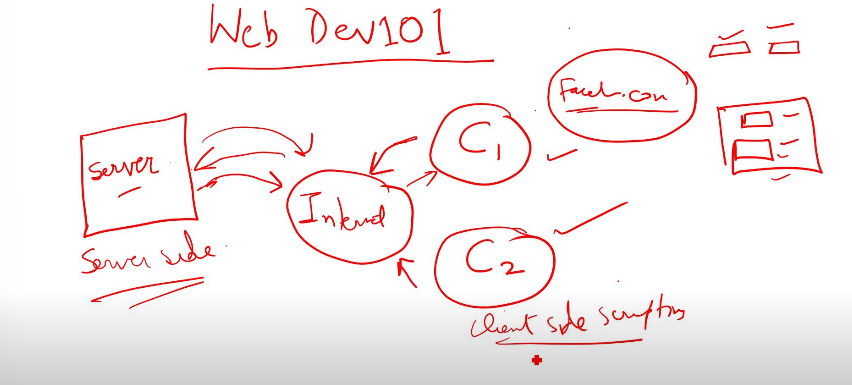 Web Dev101
Server
Server side
Internet
C1
C2
Client side scripting